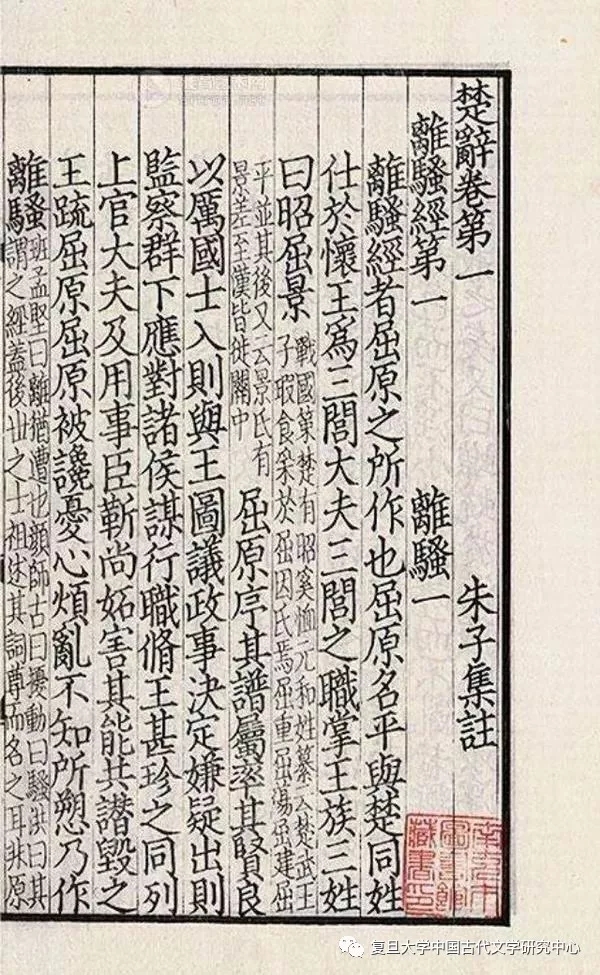 楚辭卷第一 朱子集註
離騷經第一 離騷一
離騷經者屈原之所作也屈原名平與楚同姓
仕於懷王爲三閭大夫三閭之職掌王族三姓
曰昭屈景
戰國策楚有昭奚恤元和姓纂云楚武王
子瑕食采於屈因氏焉屈重屈蕩屈建屈
平並其後又云景氏有
景差至漢皆徙關中
屈原序其譜屬率其賢良
以厲國士入則與王圖議政事決定嫌疑出則
監察群下應對諸侯謀行職脩王甚珍之同列
上官大夫及用事臣靳尚妬害其能共譖毀之
王疏屈原屈原被讒憂心煩亂不知所愬乃作
離騷
班孟堅曰離猶遭也顏師古曰擾動曰騷洪曰其
謂之經蓋後世之士祖述其詞尊而名之耳非原
南京市
圖書館
藏書印
复旦大学中国古代文学研究中心